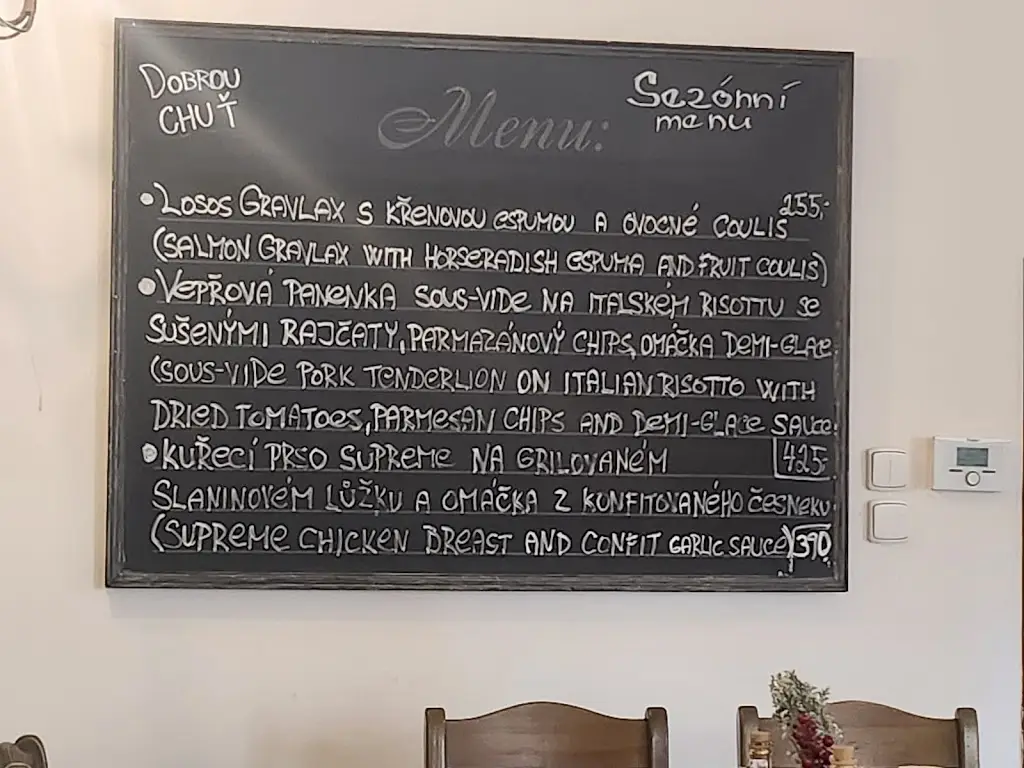 DOBROU
CHUŤ
Menu:
Sezónní
menu
• LOSOS GRAVLAX S KŘENOVOU ESPUMOU A OVOCNÉ COULIS 255,-
(SALMON GRAVLAX WITH HORSERADISH ESPUMA AND FRUIT COULIS)
• VEPŘOVÁ PANENKA SOUS-VIDE NA ITALSKÉM RISOTTU SE
SUŠENÝMI RAJČATY, PARMAZÁNOVÝ CHIPS, OMÁČKA DEMI-GLACE
(SOUS-VIDE PORK TENDERLION ON ITALIAN RISOTTO WITH
DRIED TOMATOES, PARMESAN CHIPS AND DEMI-GLACE SAUCE
• KUŘECÍ PRSO SUPREME NA GRILOVANÉM 425,-
SLANINOVÉM LŮŽKU A OMÁČKA Z KONFITOVANÉHO ČESNEKU
(SUPREME CHICKEN BREAST AND CONFIT GARLIC SAUCE) 390,-